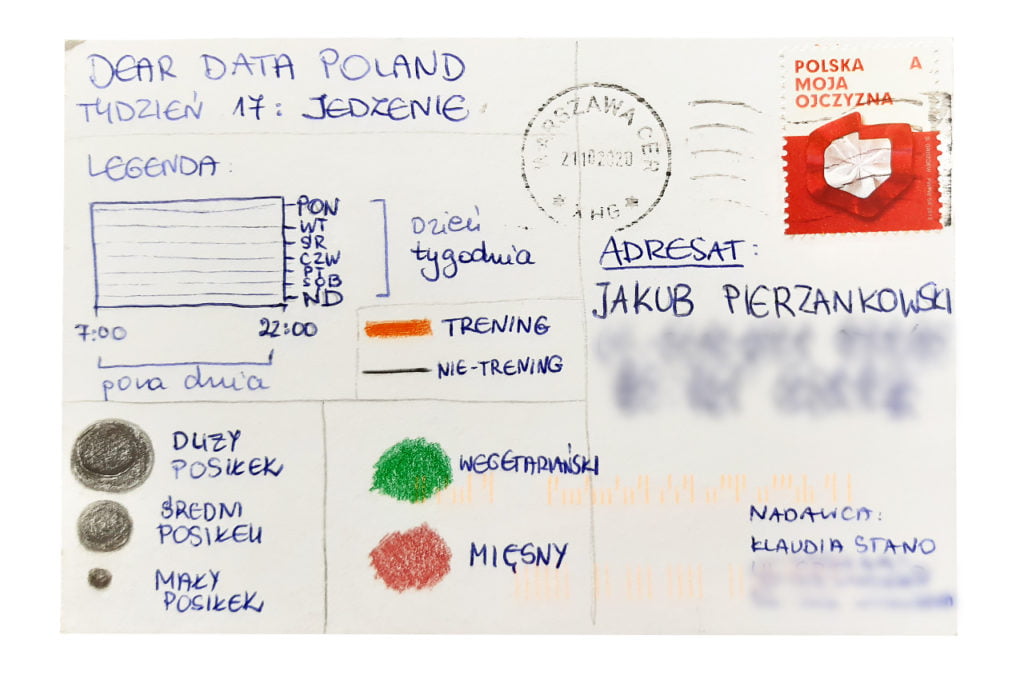 DEAR DATA POLAND
TYDZIEŃ 17: JEDZENIE
LEGENDA:
PON
WT
ŚR
CZW
PT
SOB
ND
7:00
22:00
pora dnia
Dzień
tygodnia
TRENING
NIE-TRENING
DUŻY
POSIŁEK
ŚREDNI
POSIŁEK
MAŁY
POSIŁEK
WEGETARIAŃSKI
MIĘSNY
WARSZAWA CER
21102020
POLSKA A
MOJA
OJCZYZNA
ADRESAT:
JAKUB PIERZANKOWSKI
NADAWCA:
KLAUDIA STANO